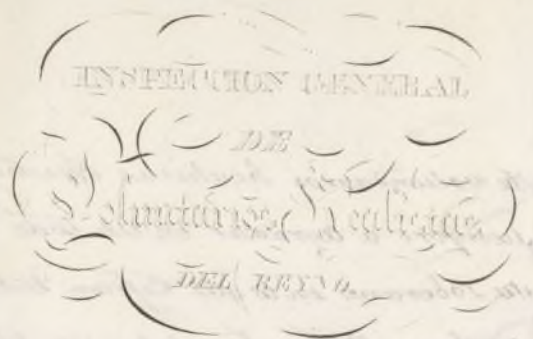 INSPECCION GENERAL
DE
Voluntarios Realistas
DEL REYNO.